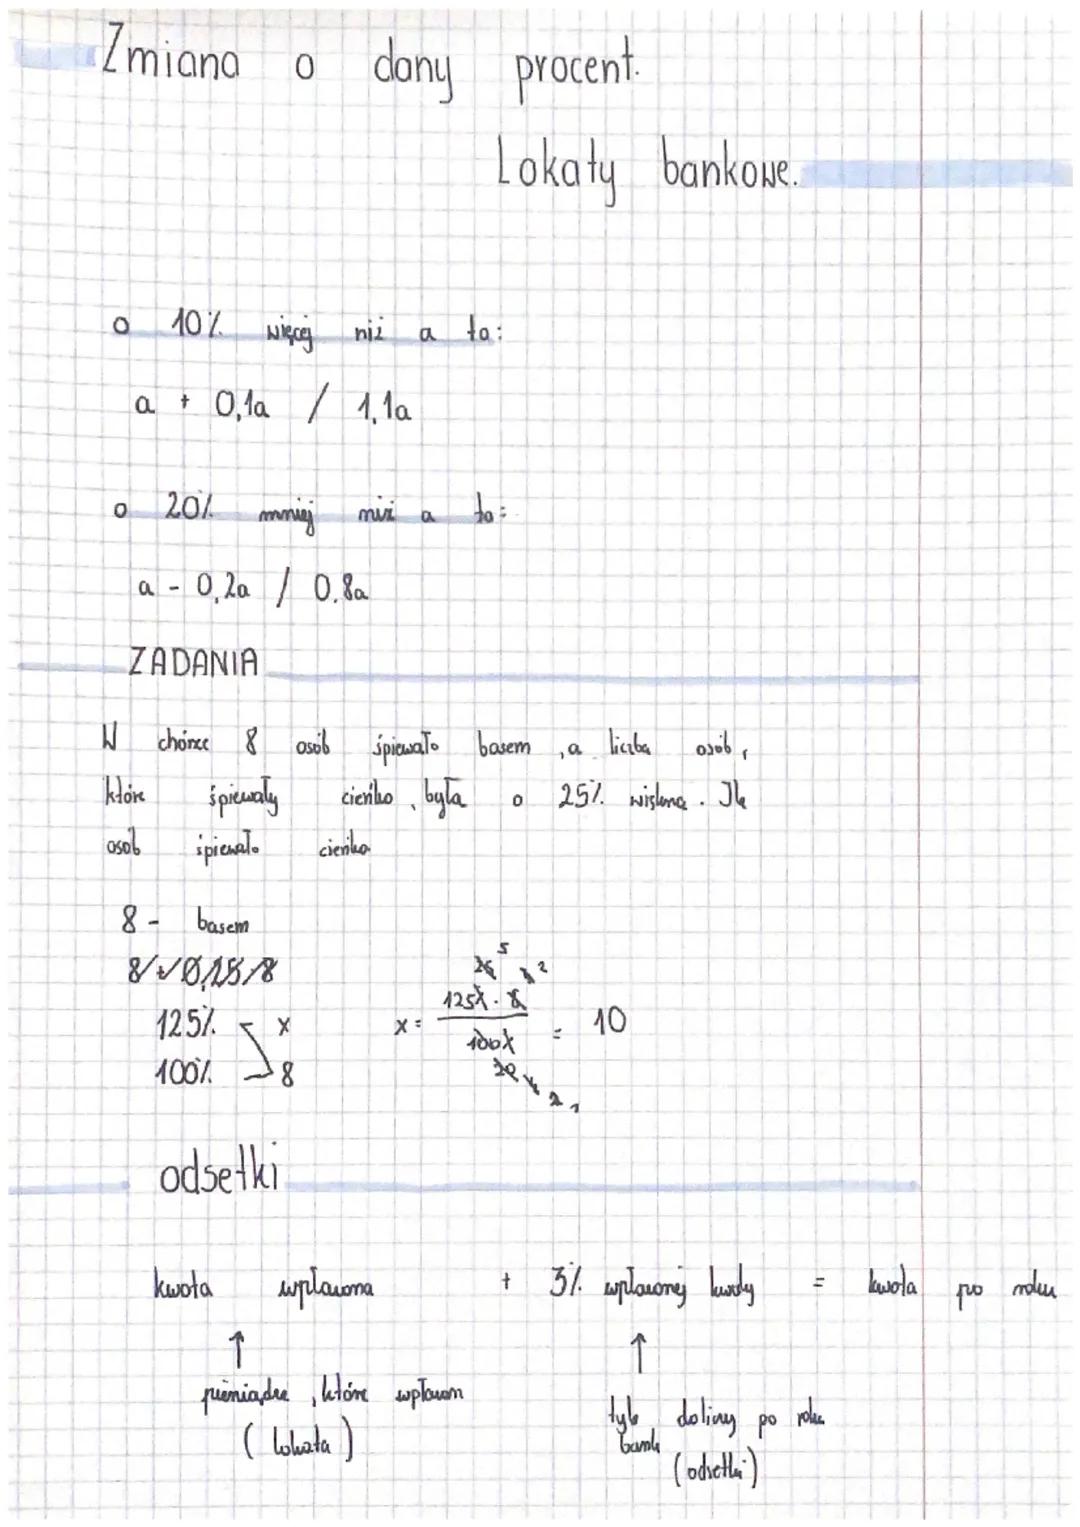 Zmiana o dany procent.
Lokaty bankowe.
o 10% więcej niż a to:
a + 0,1a / 1,1a
o 20% mniej niż a to:
a - 0,2a / 0.8a
ZADANIA
W chórze 8 osób śpiewało basem, a liczba osób,
które śpiewały cienko, była o 25% większa. Ile
osób śpiewało cienko
8 - basem
8 + 0,25 / 8
125% x
100% 8
25 5 2
x = 125% · 8 / 100% = 10
20 4 2 1
odsetki
kwota wpłacona + 3% wpłaconej kwoty = kwota po roku
↑ ↑
pieniądze, które wpłacam
(lokata)
tyle doliczy po roku
bank
(odsetki)